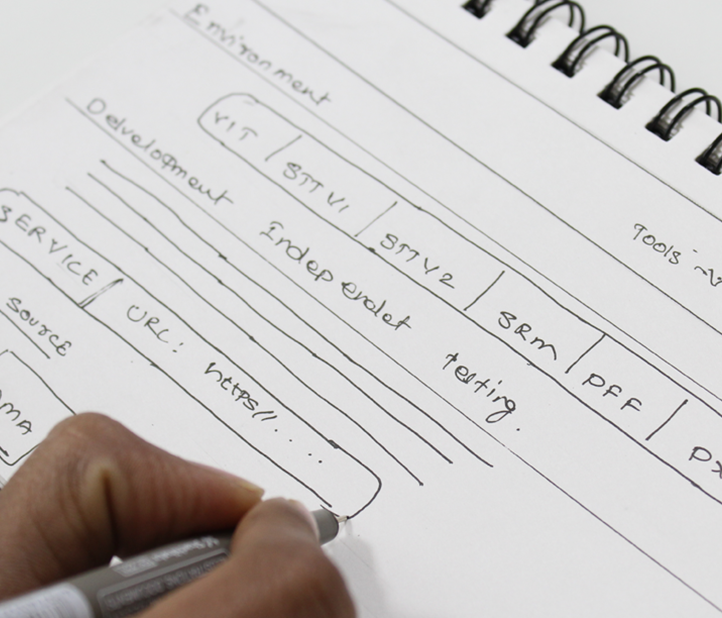 Environment
Tools
VIT / STTV1 / STTV2 / SRM / PFF / PX
Development Independet testing.
SERVICE / URL: https//.....
Source
MA